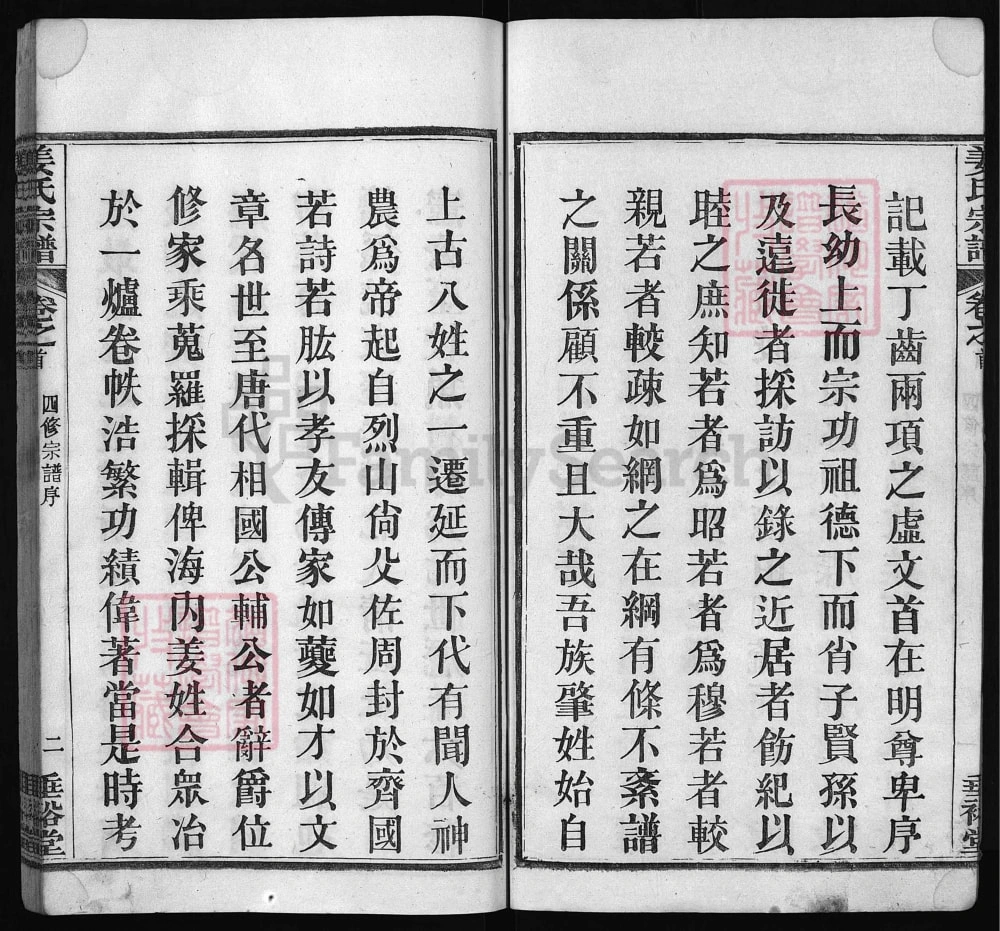 記載丁齒兩項之虛文首在明尊卑序
長幼上而宗功祖德下而肖子賢孫以
及遠徙者採訪以錄之近居者飭紀以
睦之庶知若者爲昭若者爲穆若者較
親若者較疎如網之在綱有條不紊譜
之關係顧不重且大哉吾族肇姓始自
上古八姓之一遷延而下代有聞人神
農爲帝起自烈山尙父佐周封於齊國
若詩若肱以孝友傳家如夔如才以文
章名世至唐代相國公輔公者辭爵位
修家乘蒐羅採輯俾海內姜姓合衆冶
於一爐卷帙浩繁功績偉著當是時考
姜氏宗譜
卷之首
四修宗譜序
二
垂裕堂
姜氏宗譜
卷之首
垂裕堂
FamilySearch